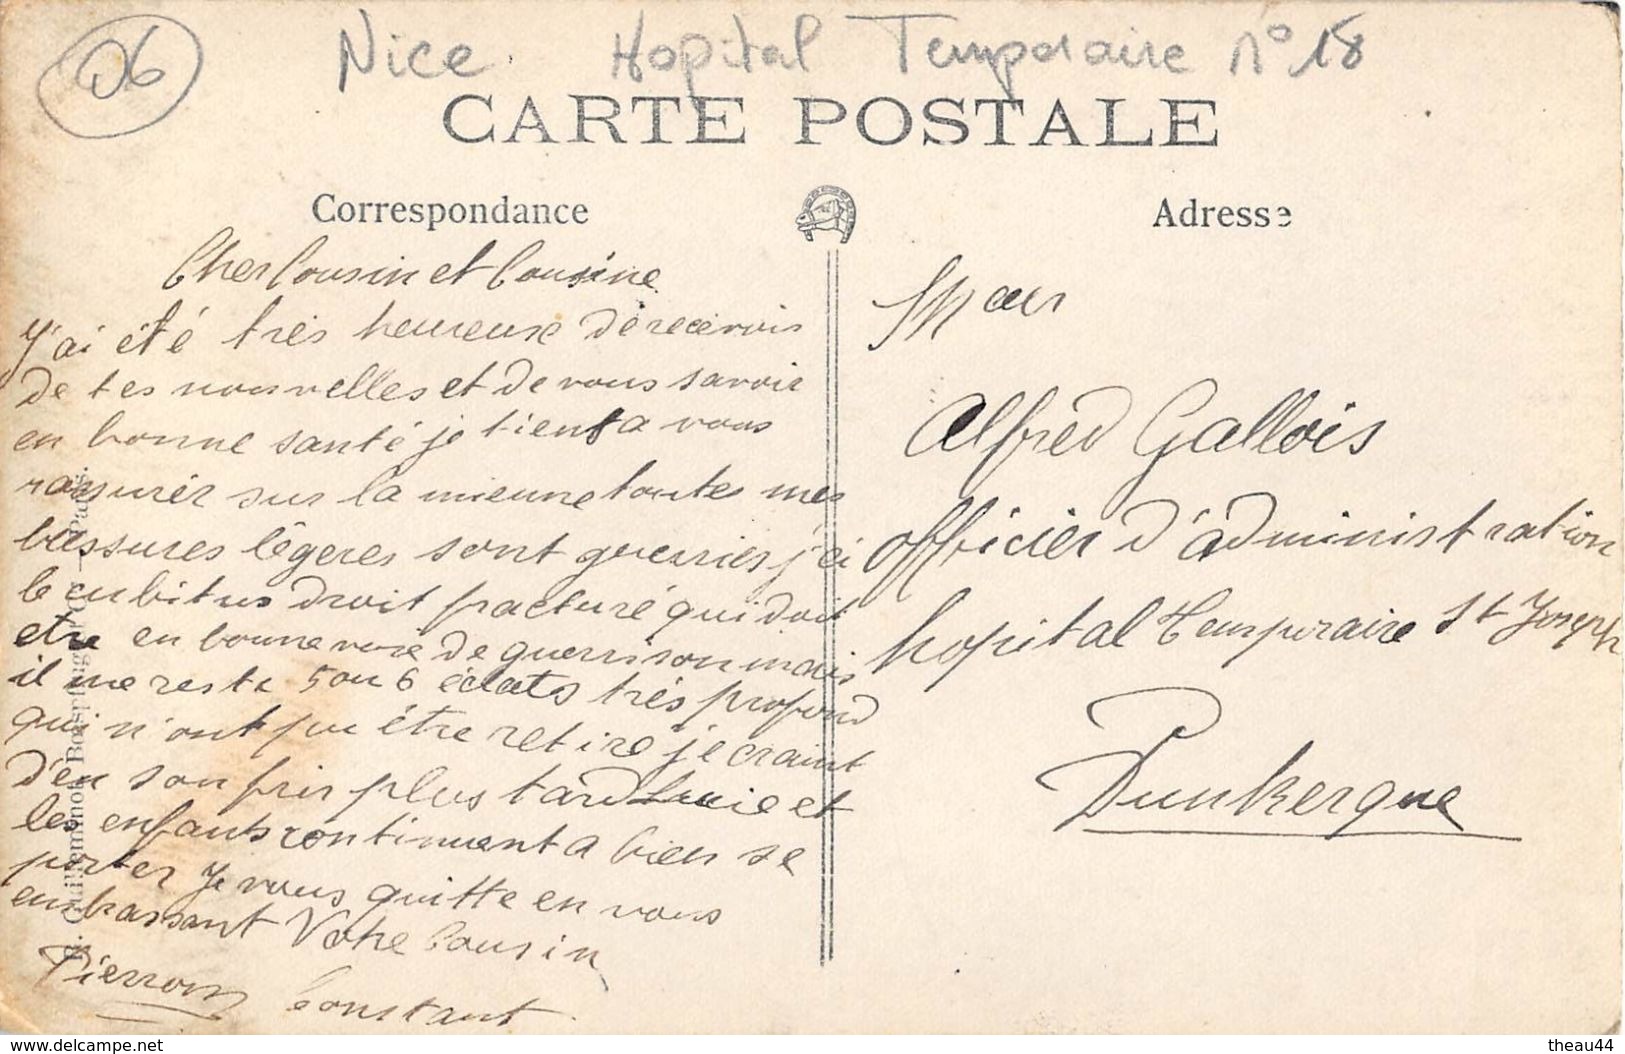 06
Nice. Hopital Temporaire n°18
CARTE POSTALE
Correspondance
Adresse
Cher Cousin et Cousine
J'ai été très heureuse de recevois
de tes nouvelles et de vous savoir
en bonne santé je tient a vous
rassurér sur la mienne toutes mes
blessures légeres sont guerries j'ai
le cubitus droit facturé qui doit
etre en bonne voie de guerrison mais
il me reste 5 ou 6 éclats trés profond
qui n'ont pu être retire je craint
d'en soufrir plus tard Lucie et
les enfants continuent a bien se
porter Je vous quitte en vous
embrassant Votre Cousin
Pierron Constant
R. Guilleminot, Bœspflug et Cie — Paris.
Alfred Gallois
officier d'administration
hopital temporaire St Joseph
Dunkerque
delcampe.net
theau44